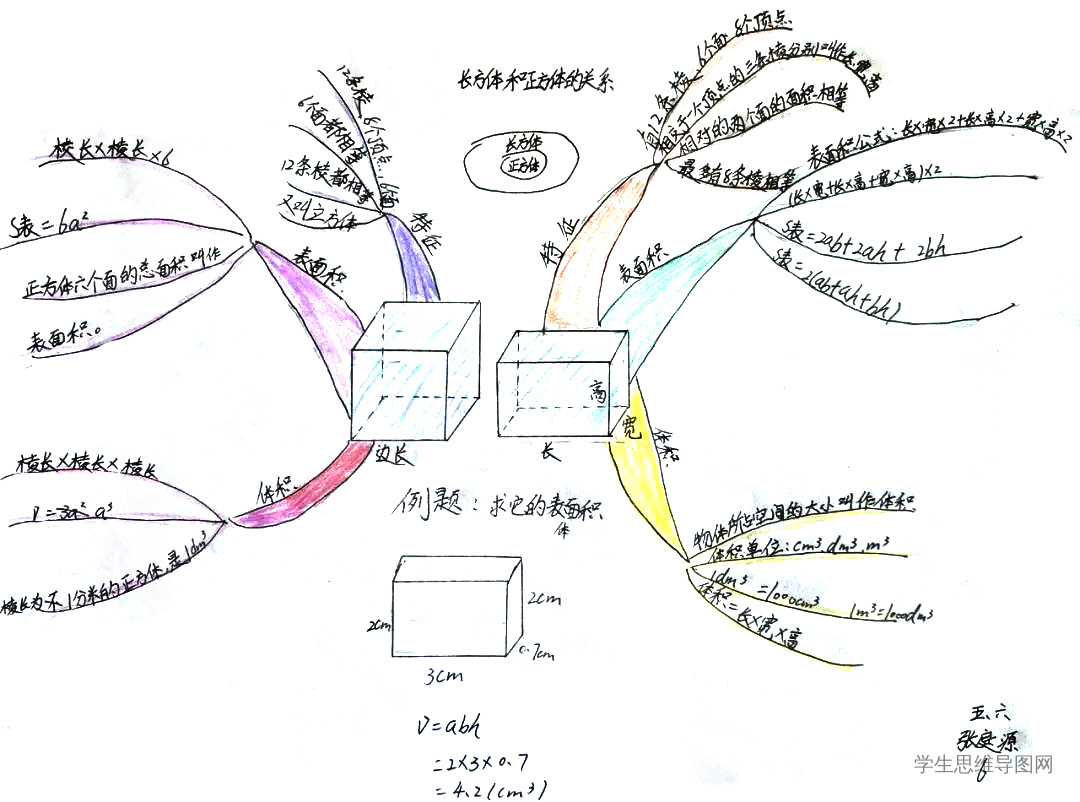 长方体和正方体的关系
长方体
正方体
12条棱 8个顶点 6面
6个面都相等
12条棱都相等
又叫立方体
特征
棱长×棱长×6
S表=6a²
正方体六个面的总面积叫作
表面积。
表面积
边长
棱长×棱长×棱长
a³
体积
有12条棱 6个面 8个顶点
相交于一个顶点的三条棱分别叫作长宽高
相对的两个面的面积相等
最多有8条棱相等
特征
表面积公式:长×宽×2+长×高×2+宽×高×2
(长×宽+长×高+宽×高)×2
S表=2ab+2ah+2bh
S表=2(ab+ah+bh)
表面积
高
宽
长
体积
物体所占空间的大小叫作体积
体积单位:cm³.dm³.m³
1dm³=1000cm³ 1m³=1000dm³
体积=长×宽×高
例题:求它的表面积
体
2cm
2cm
0.7cm
3cm
V=abh
=2×3×0.7
=4.2(cm³)
五、六
张庭源
6
学生思维导图网